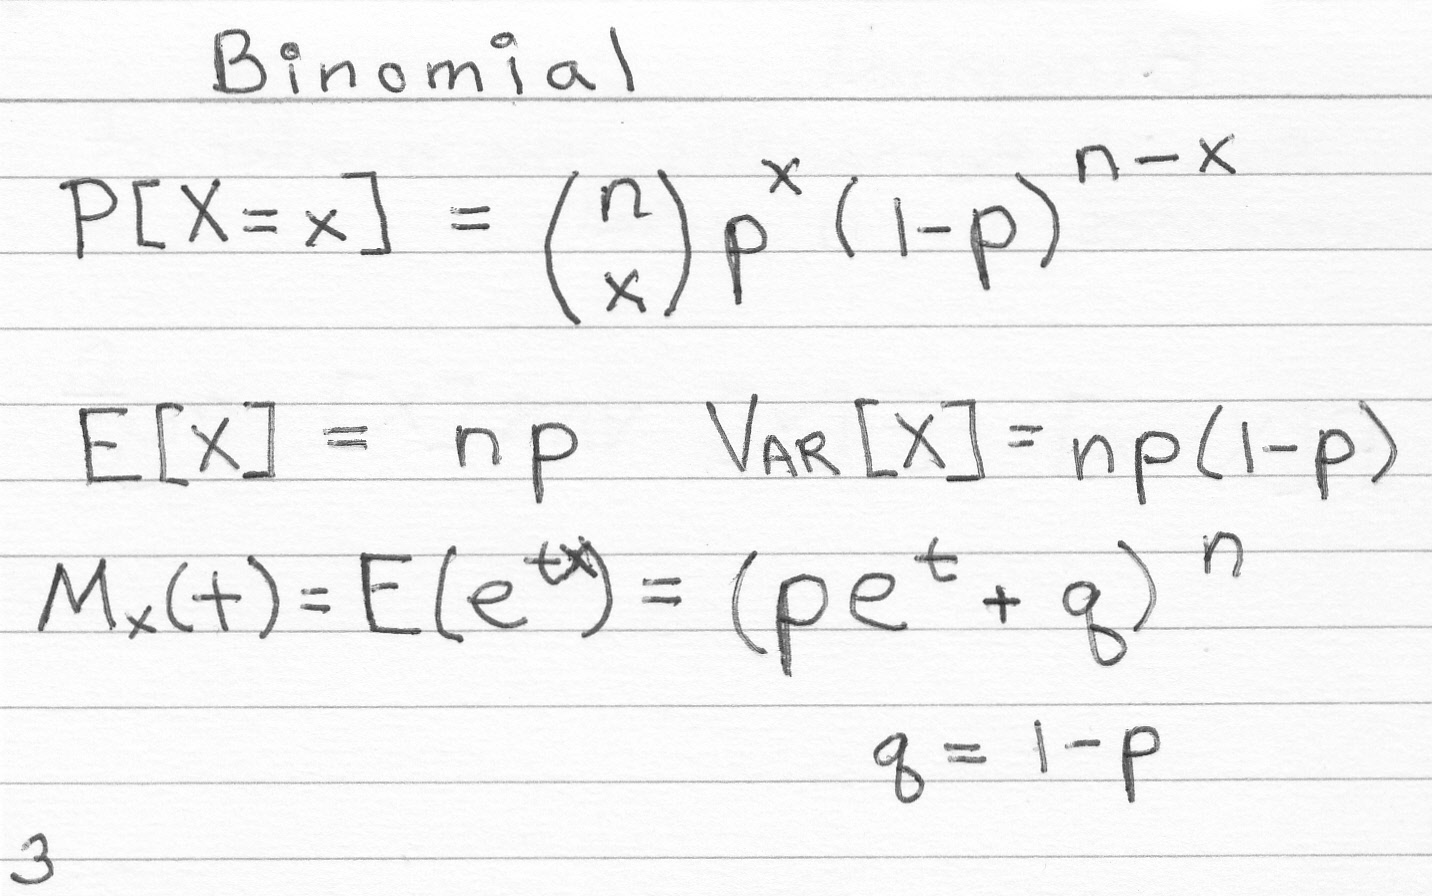 Binomial
P[X=x] = (n x) p^x (1-p)^{n-x}
E[X] = np VAR[X] = np(1-p)
M_x(t) = E(e^{tx}) = (pe^t + q)^n
q = 1-p
3